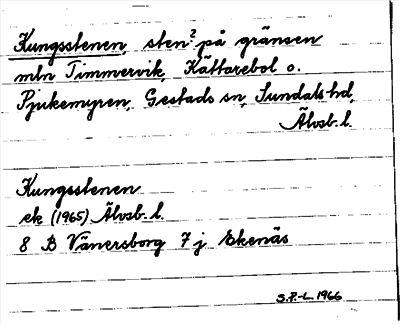 Kungsstenen, sten? på gränsen
mln Timmervik, Kättarebol o.
Pjukemyren, Gestads sn, Sundals hd,
Älvsb. l.
Kungsstenen
ek (1965) Älvsb. l.
8 B Vänersborg 7 j Ekenäs
S.P.-L. 1966